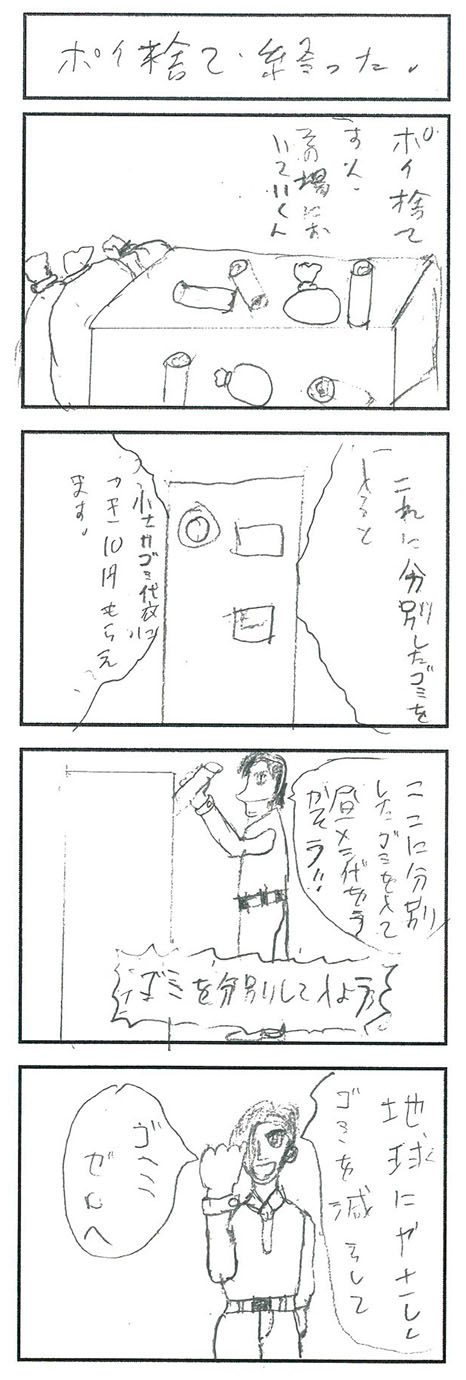 ポイ捨て・終った。
ポイ捨て
すん、
その場にお
いていくん
これに分別したゴミを
入ると
小さサゴミ代女に
つき10円もらえ
ます。
ここに分別
したゴミを入て
昼メシ代をラ
かそラ!!
ゴミを分別してねよう
地球にヤさしい
ゴミを減そして
ゴミ
ゼロへ